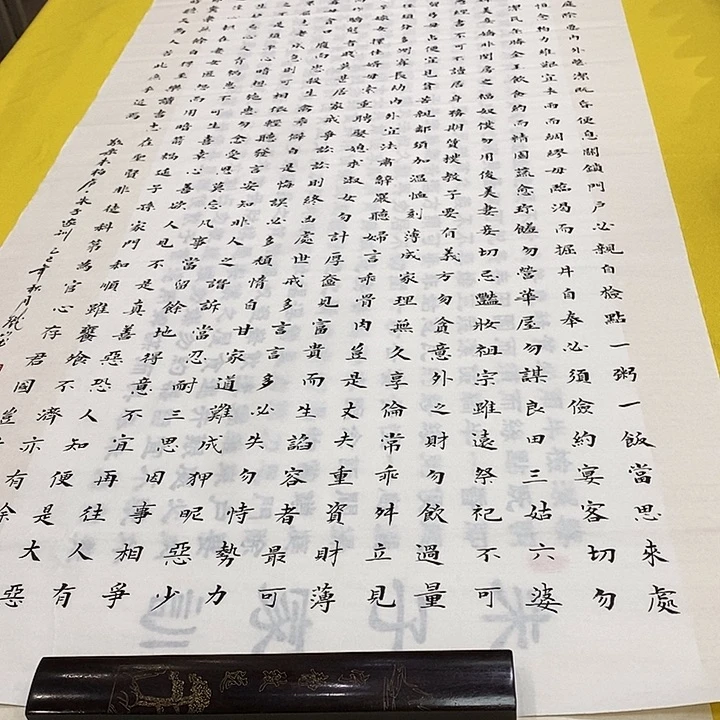 庭除要內外整潔既昏便息關鎖門戶必親自檢點一粥一飯當思來處
恒念物力維艱宜未雨而綢繆毋臨渴而掘井自奉必須儉約宴客切勿
潔瓦缶勝金玉飲食約而精園蔬愈珍饈勿營華屋勿謀良田三姑六婆
美妾嬌非閨房之福奴僕勿用俊美妻妾切忌豔妝祖宗雖遠祭祀不可
經書不可不讀居身務期質樸教子要有義方勿貪意外之財勿飲過量
毋占便宜見貧苦親鄰須加溫恤刻薄成家理無久享倫常乖舛立見
須分多潤寡長幼內外宜法肅辭嚴聽婦言乖骨肉豈是丈夫重資財薄
嫁女擇佳婿毋索重聘娶媳求淑女勿計厚奩見富貴而生諂容者最可
態者賤莫甚居家戒爭訟訟則終凶處世戒多言言多必失勿恃勢力
口腹而恣殺生禽乖僻自是悔誤必多頹惰自甘家道難成狎昵惡少
急則可相依輕聽發言安知非人之譖訴當忍耐三思因事相爭
平心暗想施惠勿念受恩莫忘凡事當留餘地得意不宜再往人有
生妒忌心人有禍患不可生喜幸心善欲人見不是真善惡恐人知便是大惡
心報在妻女匿怨而用暗箭禍延子孫家門和順雖饔飧不濟亦有餘
囊橐無餘自得至樂讀書志在聖賢非徒科第為官心存君國豈
天為人若此庶乎近焉
敬錄朱柏廬朱子家訓乙巳年